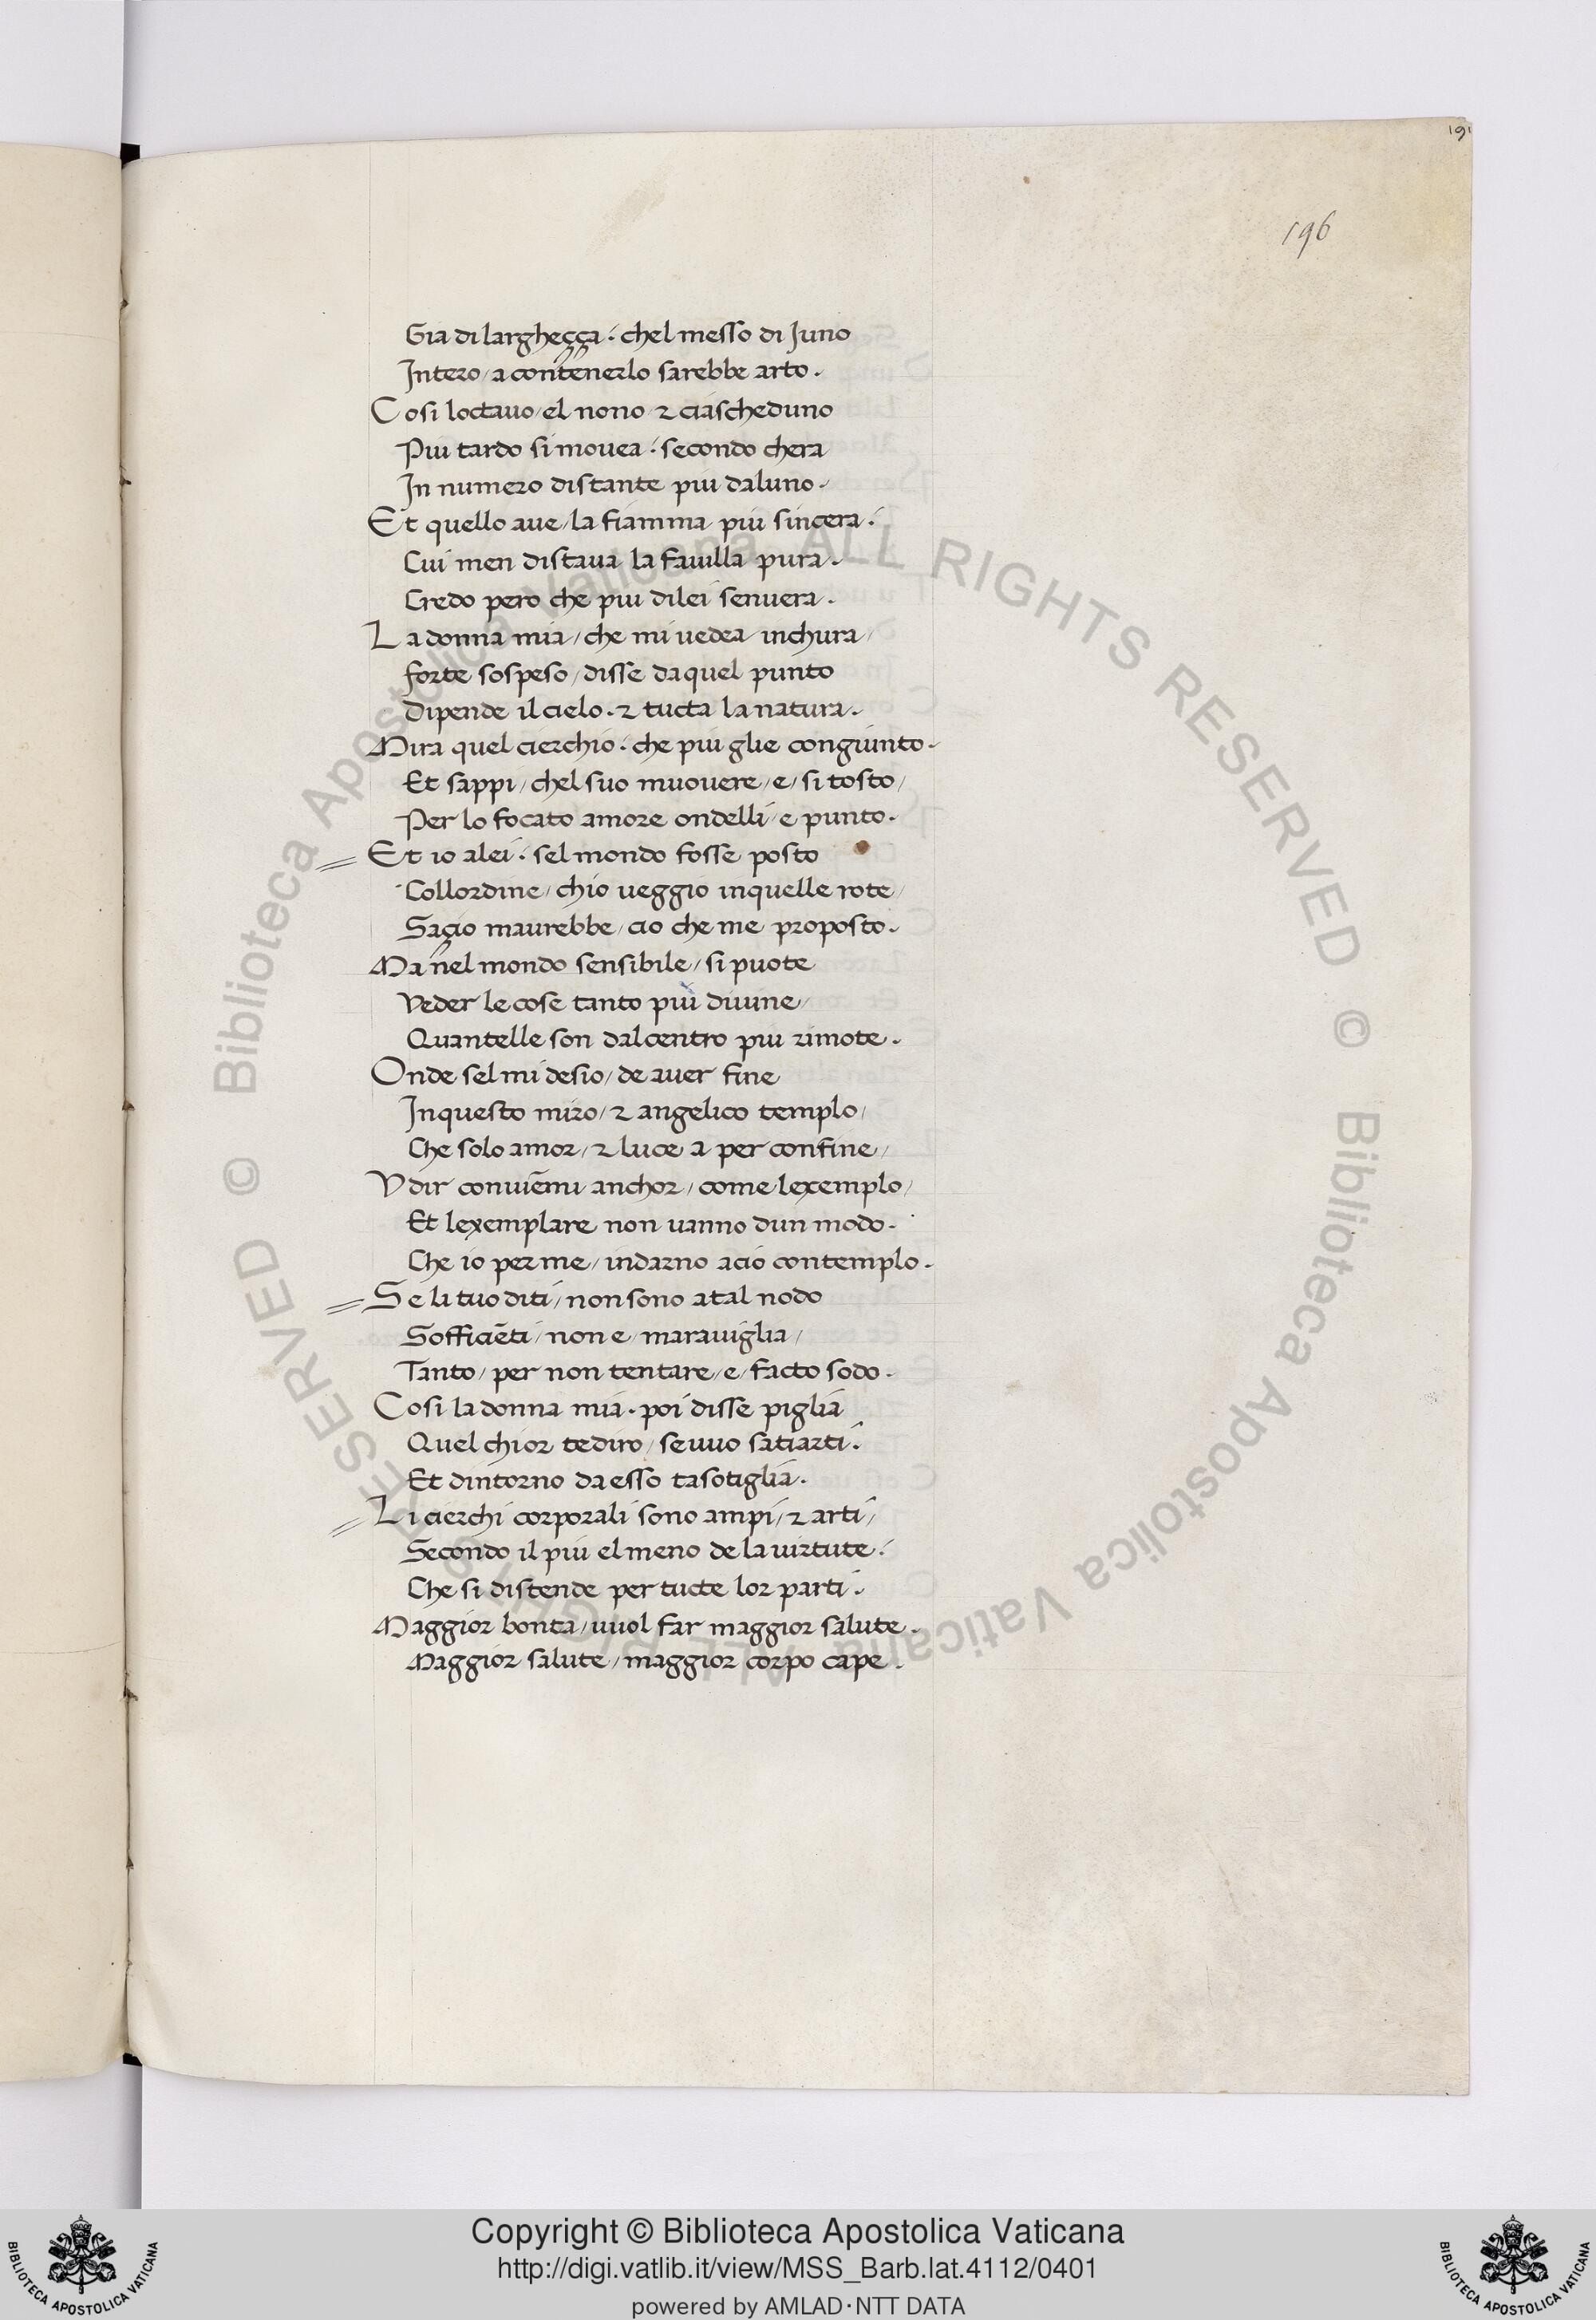 191
196
Gia di largheçça : chel messo di Juno
Intero / a contenerlo sarebbe arto .
Cosi loctauo / el nono ⁊ ciascheduno
Piu tardo si mouea : secondo chera
In numero distante piu daluno .
Et quello aue / la fiamma piu sincera :
Cui men distaua la fauilla pura .
Credo pero che piu dilei senuera .
La donna mia / che mi uedea inchura /
forte sospeso / disse daquel punto
Dipende il cielo . ⁊ tucta la natura .
Mira quel cierchio : che piu glie congiunto .
Et sappi / chel suo muouere / e / si tosto /
Per lo focato amore ondelli / e punto .
Et io alei : sel mondo fosse posto
Collordine / chio ueggio inquelle rote /
Saçio maurebbe / cio che me proposto .
Ma nel mondo sensibile / si puote
Veder le cose tanto piu diuine /
Quantelle son dalcentro piu rimote .
Onde sel mi desio / de auer fine
Inquesto miro / ⁊ angelico templo /
Che solo amor / ⁊ luce a per confine /
Vdir conuiēmi anchor / come lexemplo /
Et lexemplare non uanno dun modo .
Che io per me / indarno acio contemplo .
Se li tuo diti / non sono atal nodo
Sofficiēti / non e / marauiglia /
Tanto / per non tentare / e / facto sodo .
Cosi la donna mia . poi disse piglia
Quel chior tediro / seuuo satiarti :
Et dintorno da esso tasotiglia .
Li cierchi corporali sono ampi / ⁊ arti /
Secondo il piu el meno de la uirtute :
Che si distende per tucte lor parti .
Maggior bonta / uuol far maggior salute .
Maggior salute / maggior corpo cape .
© Biblioteca Apostolica Vaticana ALL RIGHTS RESERVED
© Biblioteca Apostolica Vaticana ALL RIGHTS RESERVED
BIBLIOTECA APOSTOLICA VATICANA
Copyright © Biblioteca Apostolica Vaticana
http://digi.vatlib.it/view/MSS_Barb.lat.4112/0401
powered by AMLAD·NTT DATA
BIBLIOTECA APOSTOLICA VATICANA